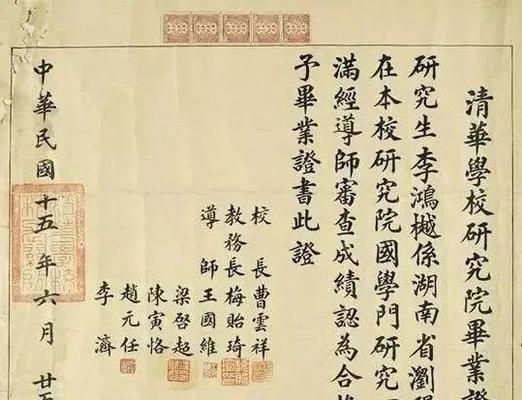 清華學校研究院畢業證
研究生李鴻樾係湖南省瀏陽
在本校研究院國學門研究
滿經導師審查成績認為合格
予畢業證書此證
校長曹雲祥
教務長梅貽琦
導師王國維
梁啓超
陳寅恪
趙元任
李濟
中華民國十五年六月廿五